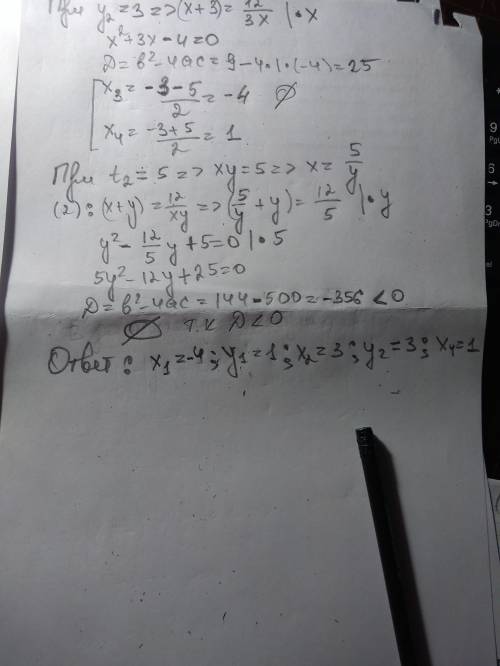 При y₂ = 3 => (x+3) = 12/3x |·x
x²+3x-4=0
D=в²-4ас=9-4·1·(-4)=25
[x₃ = (-3-5)/2 = -4 ∅
x₄ = (-3+5)/2 = 1
При t₂ = 5 => xy=5 => x = 5/y
(2): (x+y) = 12/xy => (5/y + y) = 12/5 |·y
y² - 12/5 y + 5 = 0 |·5
5y²-12y+25=0
D=в²-4ас=144-500=-356<0
∅ т.к D<0
Ответ: x₁=-4; y₁=1; x₂=3; y₂=3; x₄=1